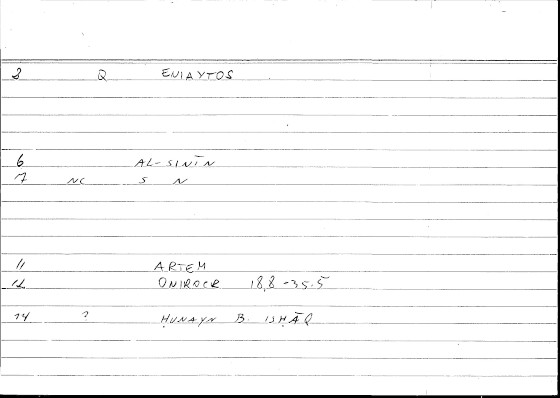 3 Q ENIAYTOS
6 AL-SINĪN
7 NC S N
11 ARTEM
12 ONIROCR 18,8-35.5
14 ? ḤUNAYN B. ISḤĀQ